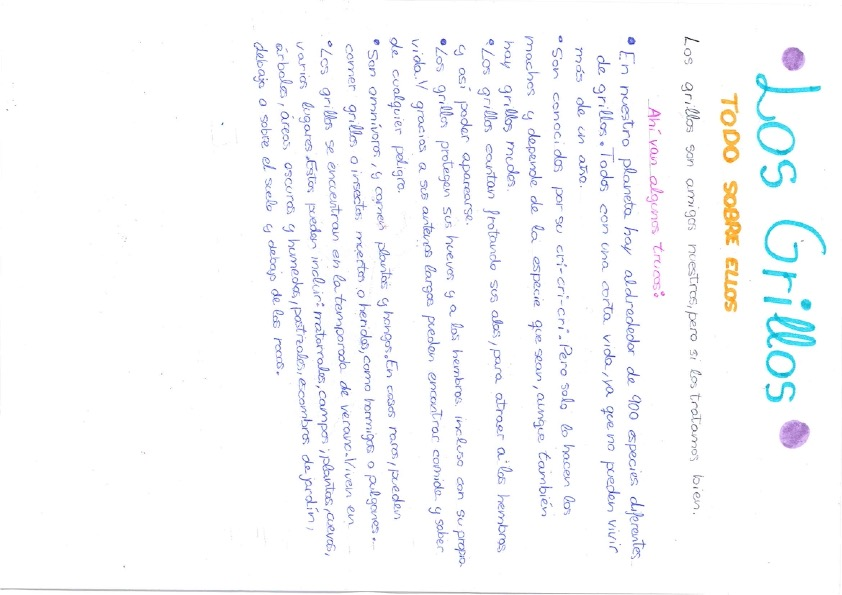 Los Grillos
TODO SOBRE ELLOS
Los grillos son amigos nuestros, pero si los tratamos bien.
Ahí van algunos trucos:
• En nuestro planeta hay aldrededor de 900 especies diferentes
de grillos. Todos con una corta vida, ya que no pueden vivir
más de un año.
• Son conocidos por su cri-cri-cri. Pero solo lo hacen los
machos y depende de la especie que sean, aunque también
hay grillos mudos.
• Los grillos cantan frotando sus alas, para atraer a los hembras
y así poder aparearse.
• Los grillos protegen sus huevos y a las hembras incluso con su propia
vida. Y gracias a sus antenas largas pueden encontrar comida y saber
de cualquier peligro.
• Son omnívoros, y comen plantas y hongos. En casos raros, pueden
comer grillos o insectos muertos o heridos, como hormigas o pulgones.
• Los grillos se encuentran en la temporada de verano. Viven en
varios lugares. Estos pueden incluir: matorrales, campos, plantas, cuevas,
árboles, áreas oscuras y humedas, pastizales, escombros de jardín,
debajo o sobre el suelo y debajo de las rocas.